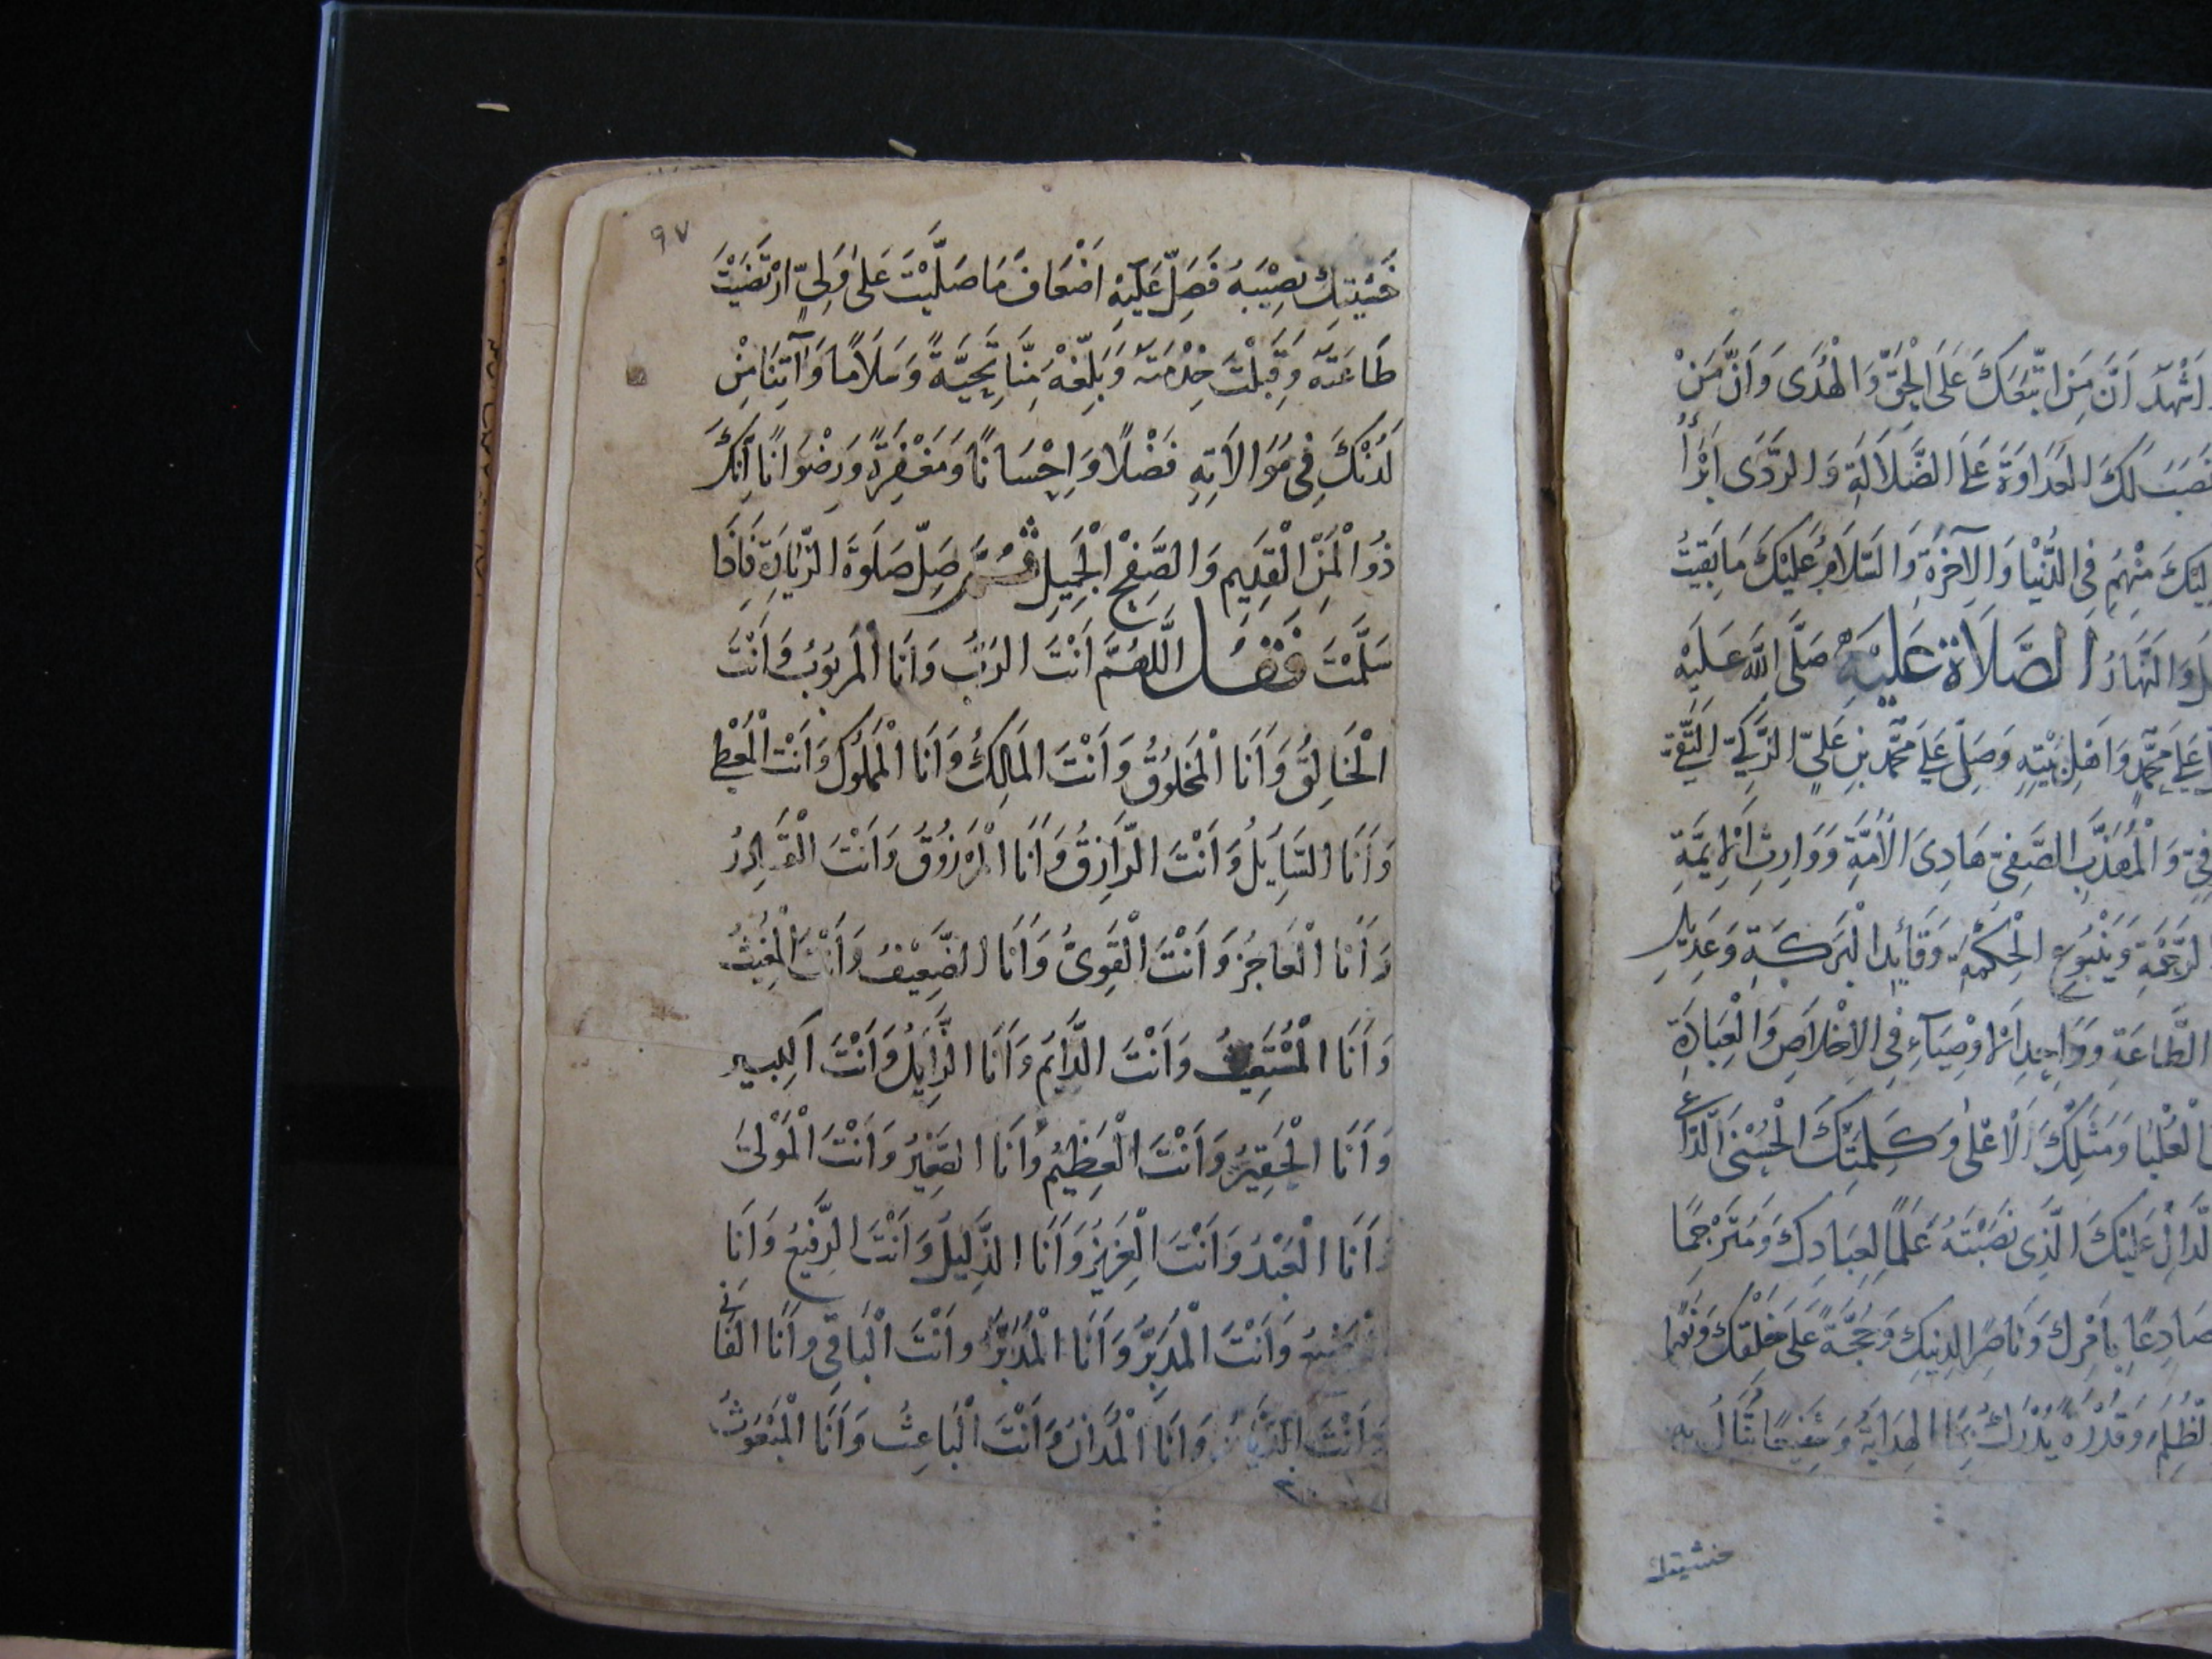 اَشْهَدُ اَنَّ مَنِ اتَّبَعَكَ عَلَى الْحَقِّ وَالْهُدٰى وَاَنَّ مَنْ
نَصَبَ لَكَ الْعَدَاوَةَ عَلَى الضَّلَالَةِ وَالرَّدٰى اَبْرَأُ
اِلَيْكَ مِنْهُمْ فِى الدُّنْيَا وَالْآخِرَةِ وَالسَّلَامُ عَلَيْكَ مَا بَقِيتُ
وَالنَّهَارُ الصَّلَاةُ عَلَيْهِ صَلَّى اللّٰهُ عَلَيْهِ
عَلٰى مُحَمَّدٍ وَاَهْلِ بَيْتِهِ وَصَلِّ عَلٰى مُحَمَّدِ بْنِ عَلِيٍّ الزَّكِيِّ التَّقِيِّ
وَالْمُهَذَّبِ الصَّفِيِّ هَادِىَ الْاُمَّةِ وَوَارِثِ الْاَئِمَّةِ
الرَّحْمَةِ وَيَنْبُوعِ الْحِكْمَةِ وَقَائِدِ الْبَرَكَةِ وَعَدِيلِ
الطَّاعَةِ وَوَاحِدِ الْاَوْصِيَآءِ فِى الْاِخْلَاصِ وَالْعِبَادَةِ
الْعُلْيَا وَمَثَلِكَ الْاَعْلٰى وَكَلِمَتِكَ الْحُسْنَى الدَّاعِى
الدَّالِّ عَلَيْكَ الَّذِى نَصَبْتَهُ عَلَمًا لِعِبَادِكَ وَمُتَرْجِمًا
صَادِعًا بِاَمْرِكَ وَنَاصِرًا لِدِينِكَ وَحُجَّةً عَلٰى خَلْقِكَ وَنُورًا
الظُّلَمُ وَقُدْوَةً يُدْرَكُ بِهَا الْهِدَايَةُ وَشَفِيعًا تُنَالُ بِهِ
خشيتك
٩٧
خَشْيَتِكَ نَصِيْبَهُ فَصَلِّ عَلَيْهِ اَضْعَافَ مَا صَلَّيْتَ عَلٰى وَلِيٍّ ارْتَضَيْتَ
طَاعَتَهُ وَقَبِلْتَ خِدْمَتَهُ وَبَلِّغْهُ مِنَّا تَحِيَّةً وَسَلَامًا وَآتِنَا مِنْ
لَدُنْكَ فِى مُوَالَاتِهِ فَضْلًا وَاِحْسَانًا وَمَغْفِرَةً وَرِضْوَانًا اِنَّكَ
ذُو الْمَنِّ الْقَدِيمِ وَالصَّفْحِ الْجَمِيلِ ثُمَّ صَلِّ صَلَوةَ الزِّيَارَةِ فَاِذَا
سَلَّمْتَ فَقُلْ اَللّٰهُمَّ اَنْتَ الرَّبُّ وَاَنَا الْمَرْبُوبُ وَاَنْتَ
الْخَالِقُ وَاَنَا الْمَخْلُوْقُ وَاَنْتَ الْمَالِكُ وَاَنَا الْمَمْلُوكُ وَاَنْتَ الْمُعْطِى
وَاَنَا السَّايِلُ وَاَنْتَ الرَّازِقُ وَاَنَا الْمَرْزُوْقُ وَاَنْتَ الْقَادِرُ
وَاَنَا الْعَاجِزُ وَاَنْتَ الْقَوِىُّ وَاَنَا الضَّعِيْفُ وَاَنْتَ الْمُغِيْثُ
وَاَنَا الْمُسْتَغِيثُ وَاَنْتَ الدَّائِمُ وَاَنَا الزَّايِلُ وَاَنْتَ الْكَبِيرُ
وَاَنَا الْحَقِيْرُ وَاَنْتَ الْعَظِيْمُ وَاَنَا الصَّغِيْرُ وَاَنْتَ الْمَوْلٰى
وَاَنَا الْعَبْدُ وَاَنْتَ الْعَزِيْزُ وَاَنَا الذَّلِيْلُ وَاَنْتَ الرَّفِيعُ وَاَنَا
وَاَنْتَ الْمُدَبِّرُ وَاَنَا الْمُدَبَّرُ وَاَنْتَ الْبَاقِى وَاَنَا الْفَانِى
وَاَنْتَ الدَّيَّانُ وَاَنَا الْمُدَانُ وَاَنْتَ الْبَاعِثُ وَاَنَا الْمَبْعُوثُ